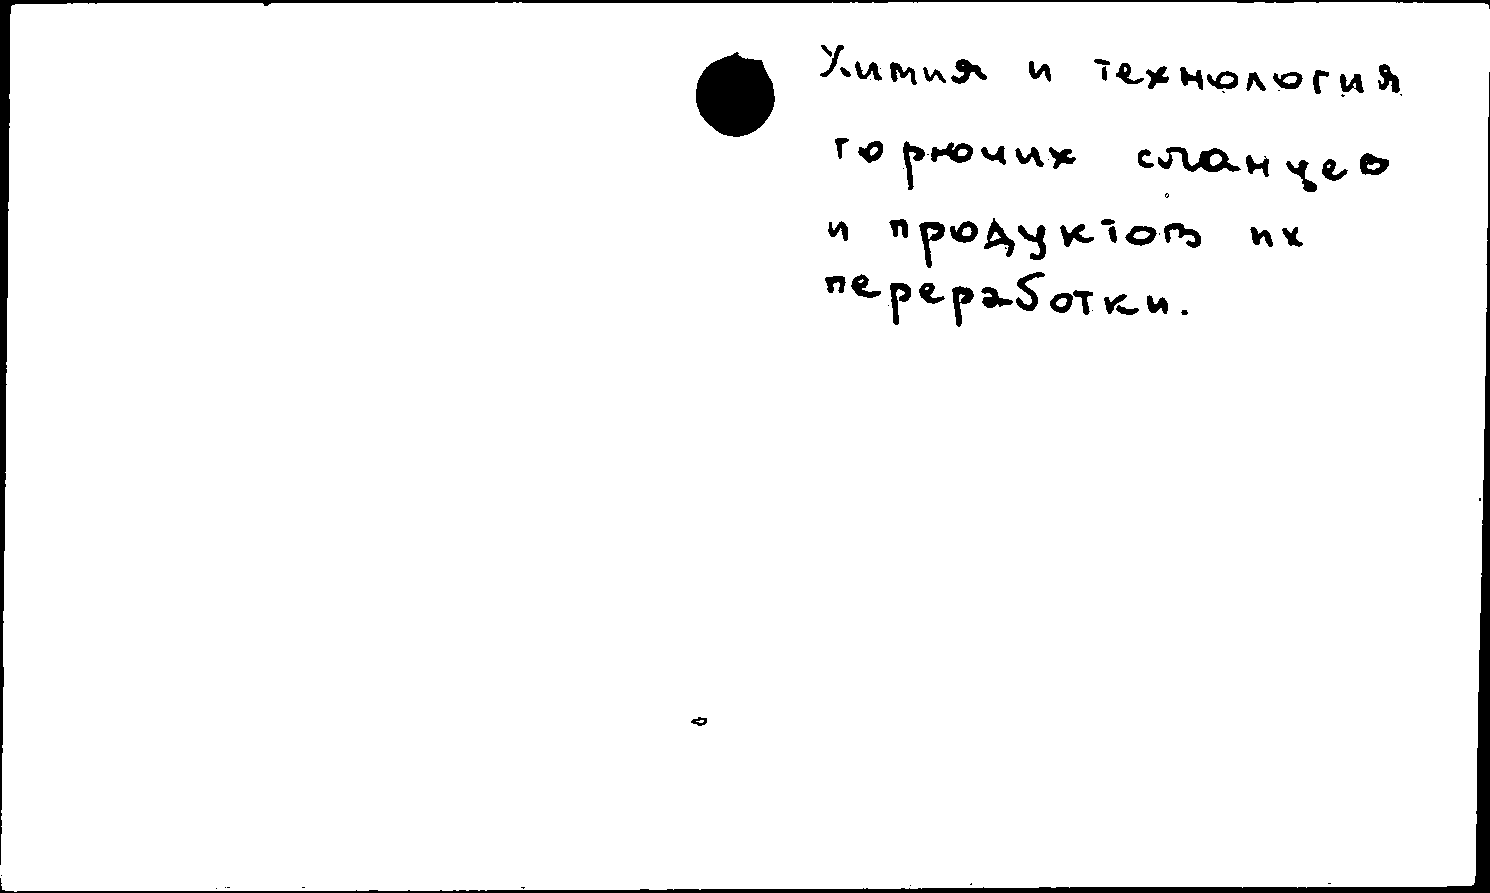 Химия и технология
горючих сланцев
и продуктов их
переработки.